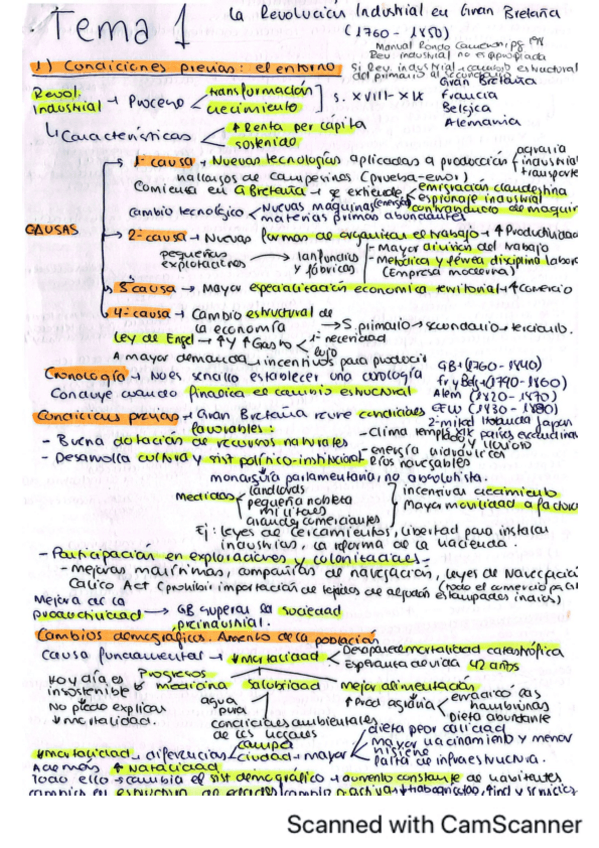 Tema 1
La Revolución Industrial en Gran Bretaña
(1760 - 1850)
Manual Rondo Cameron, pg 198
Rev industrial no es apropiada
Si Rev industrial → cambio estructural
del primario al secundario
1) Condiciones previas: el entorno
Revol. industrial → Proceso < transformación
crecimiento ] s. XVIII - XIX
Gran Bretaña
Francia
Belgica
Alemania
↳ Características < ↑ Renta per cápita
sostenido
CAUSAS
1ª causa → Nuevas tecnologías aplicadas a producción
agraria
industrial
transporte
hallazgos de campesinos (prueba-error)
Comienza en G Bretaña → se extiende
emigración clandestina
espionaje industrial
contrabando de maquin
Cambio tecnológico < Nuevas máquinas
materias primas abundantes
2ª causa → Nuevas formas de organizar el trabajo → ↑ Productividad
pequeñas explotaciones → latifundios y fábricas
- Mayor división del trabajo
- Metódica y férrea disciplina labora
(Empresa moderna)
3ª causa → Mayor especialización economía territorial → ↑ Comercio
4ª causa → Cambio estructural de
la economía → S. primario → secundario → terciario.
Ley de Engel → ↑Y ↑ Gasto < 1ª necesidad
lujo
A mayor demanda → incentivos para producir
Cronología → No es sencillo establecer una cronología
Concluye cuando finaliza el cambio estructural
GB → (1760 - 1840)
Fr y Belg → (1790 - 1860)
Alem (1820 - 1870)
EEUU (1830 - 1880)
2ª mitad XIX Holanda Japón
Condiciones previas → Gran Bretaña reune condiciones
favorables:
- Buena dotación de recursos naturales
- Clima templado y lluvioso
- energía hidráulica
- Ríos navegables
- Desarrolla cultura y sist político-institucional
monarquía parlamentaria, no absolutista.
Medidas < landlords
pequeña nobleza
militares
grandes comerciantes
incentivar crecimiento
Mayor movilidad a factore
Ej: leyes de cercamientos, libertad para instalar
industrias, la reforma de la hacienda.
- Participación en exploraciones y colonizaciones -
- mejoras marítimas, compañías de navegación, leyes de Navegación
Calico Act (prohibir importación de tejidos de algodón estampados indios)
Mejora de la productividad → GB supera la sociedad
preindustrial.
Cambios demográficos. Aumento de la población
Causa fundamental → ↓ mortalidad < Desaparece mortalidad catastrófica
Esperanza de vida 42 años
Progresos
Hoy día es insostenible
No puede explicar
↓ mortalidad.
medicina
Salubridad
agua pura
condiciones ambientales
de los hogares
Mejor alimentación
↑ Prod agraria < erradicó las hambrunas
Dieta abundante
↓ mortalidad → diferencias < campo
ciudad → mayor
dieta peor calidad
Mayor hacinamiento y menor higiene
Falta de infraestructura.
Además ↑ Natalidad
Todo ello → cambia el sist demográfico → aumento constante de habitantes
Scanned with CamScanner